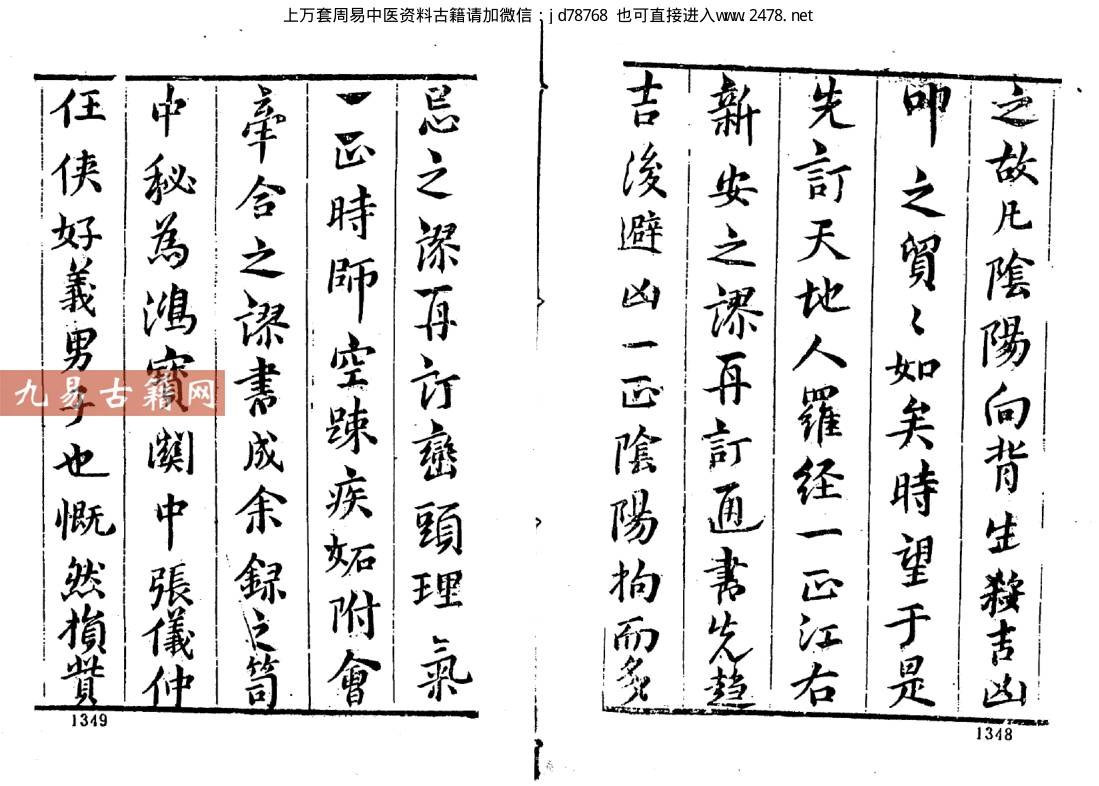 上万套周易中医资料古籍请加微信：jd78768 也可直接进入www.2478.net
之故凡陰陽向背生殺吉凶
叩之貿〻如矣時望于是
先訂天地人羅经一正江右
新安之謬再訂通書先趋
吉後避凶一正陰陽拘而多
1348
忌之謬再订巒頭理氣
一正時師空踈疾妬附會
牽合之謬書成余録之笥
中秘為鴻寳瀾中張儀仲
任侠好義男子也慨然損貲
1349
九易古籍网